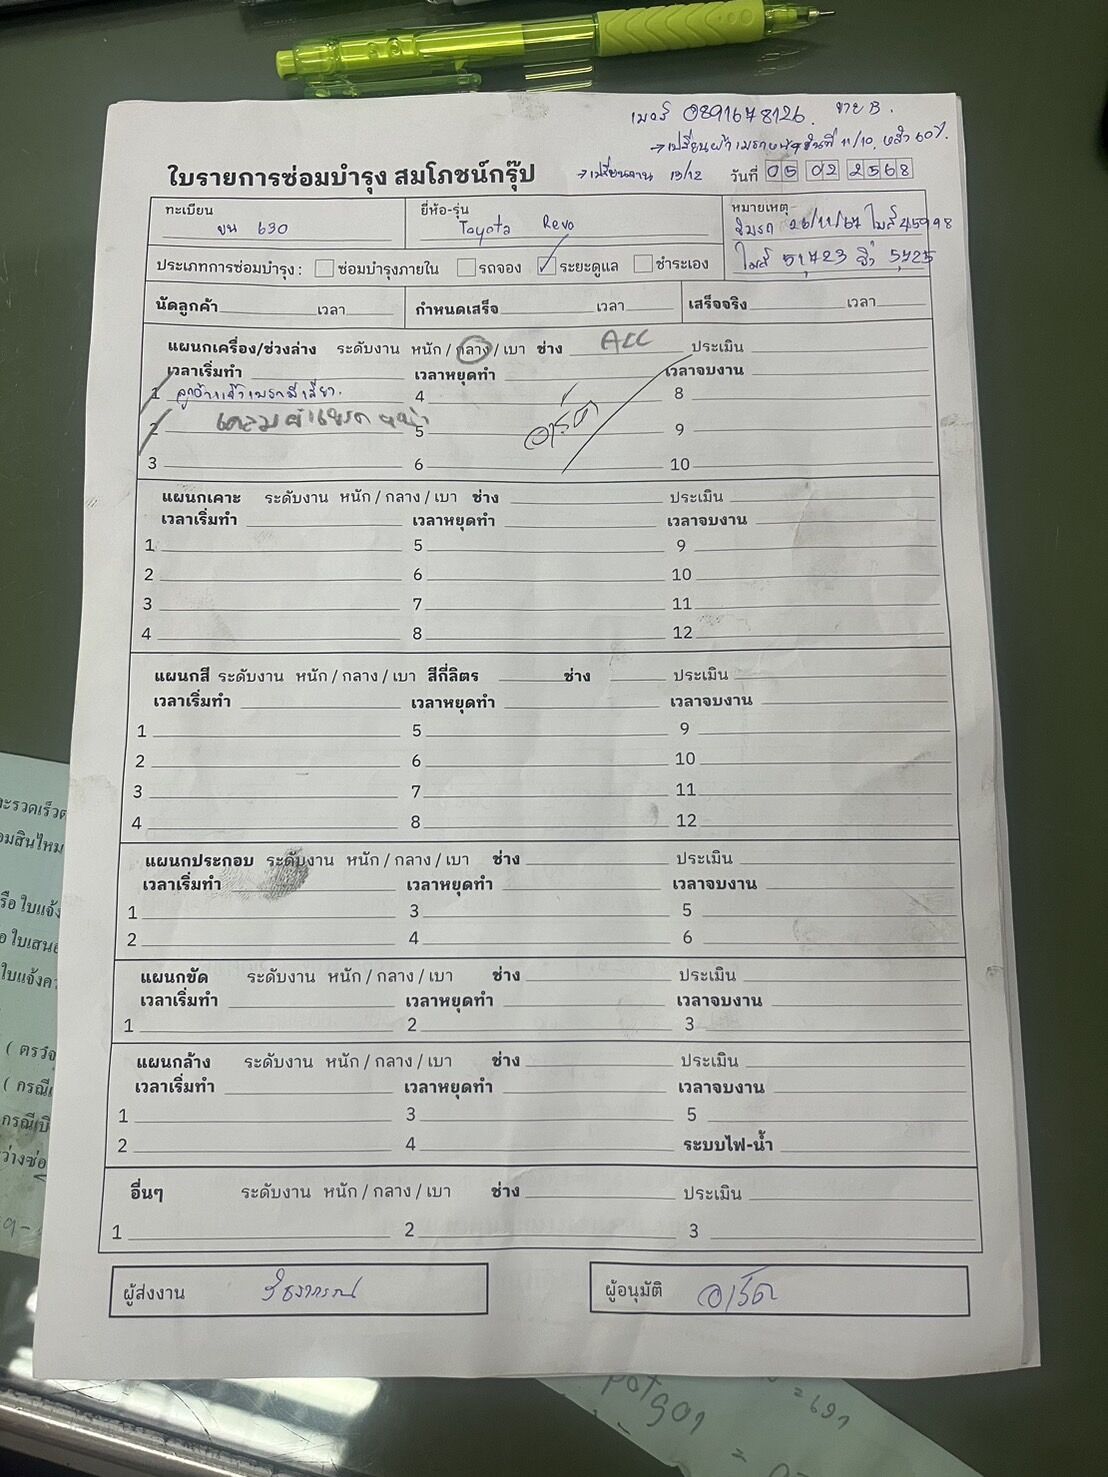 เบอร์ 0891678126. ขาย B.
→เปลี่ยนผ้าเบรกหน้า วันที่ 11/10, เหลือ 60%.
ใบรายการซ่อมบำรุง สมโภชน์กรุ๊ป →เปลี่ยนจาน 13/12 วันที่ 05 02 2568
ทะเบียน ยี่ห้อ-รุ่น หมายเหตุ
ขน 630 Toyota Revo ซื้อรถ 26/11/67 ไมล์ 45998
ประเภทการซ่อมบำรุง : ซ่อมบำรุงภายใน รถจอง ระยะดูแล ชำระเอง ไมล์ 51,723 วิ่ง 5,725
นัดลูกค้า เวลา กำหนดเสร็จ เวลา เสร็จจริง เวลา
แผนกเครื่อง/ช่วงล่าง ระดับงาน หนัก / กลาง / เบา ช่าง ACC ประเมิน
เวลาเริ่มทำ เวลาหยุดทำ เวลาจบงาน
1 ลูกค้าแจ้งเบรกมีเสียง. 4 8
2 เคลมผ้าเบรกหน้า 5 อาร์ต 9
3 6 10
แผนกเคาะ ระดับงาน หนัก / กลาง / เบา ช่าง ประเมิน
เวลาเริ่มทำ เวลาหยุดทำ เวลาจบงาน
1 5 9
2 6 10
3 7 11
4 8 12
แผนกสี ระดับงาน หนัก / กลาง / เบา สีกี่ลิตร ช่าง ประเมิน
เวลาเริ่มทำ เวลาหยุดทำ เวลาจบงาน
1 5 9
2 6 10
3 7 11
4 8 12
แผนกประกอบ ระดับงาน หนัก / กลาง / เบา ช่าง ประเมิน
เวลาเริ่มทำ เวลาหยุดทำ เวลาจบงาน
1 3 5
2 4 6
แผนกขัด ระดับงาน หนัก / กลาง / เบา ช่าง ประเมิน
เวลาเริ่มทำ เวลาหยุดทำ เวลาจบงาน
1 2 3
แผนกล้าง ระดับงาน หนัก / กลาง / เบา ช่าง ประเมิน
เวลาเริ่มทำ เวลาหยุดทำ เวลาจบงาน
1 3 5
2 4 ระบบไฟ-น้ำ
อื่นๆ ระดับงาน หนัก / กลาง / เบา ช่าง ประเมิน
1 2 3
ผู้ส่งงาน ผู้อนุมัติ อาร์ต